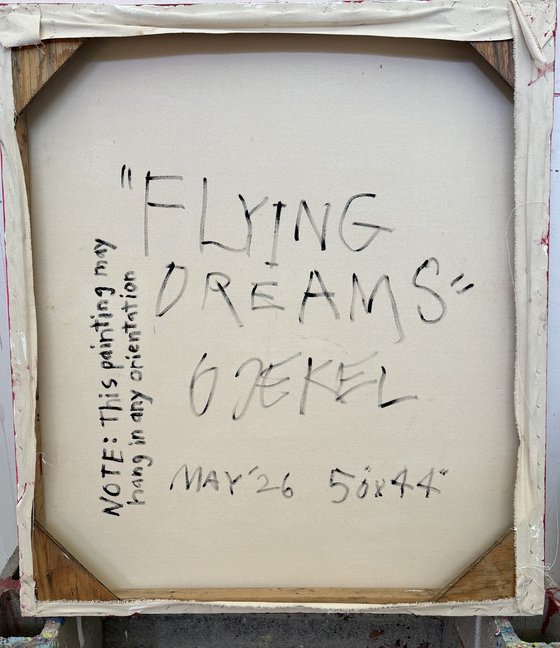 "FLYING
DREAMS"
GJEKEL
MAY '26 50"x44"
NOTE: This painting may
hang in any orientation